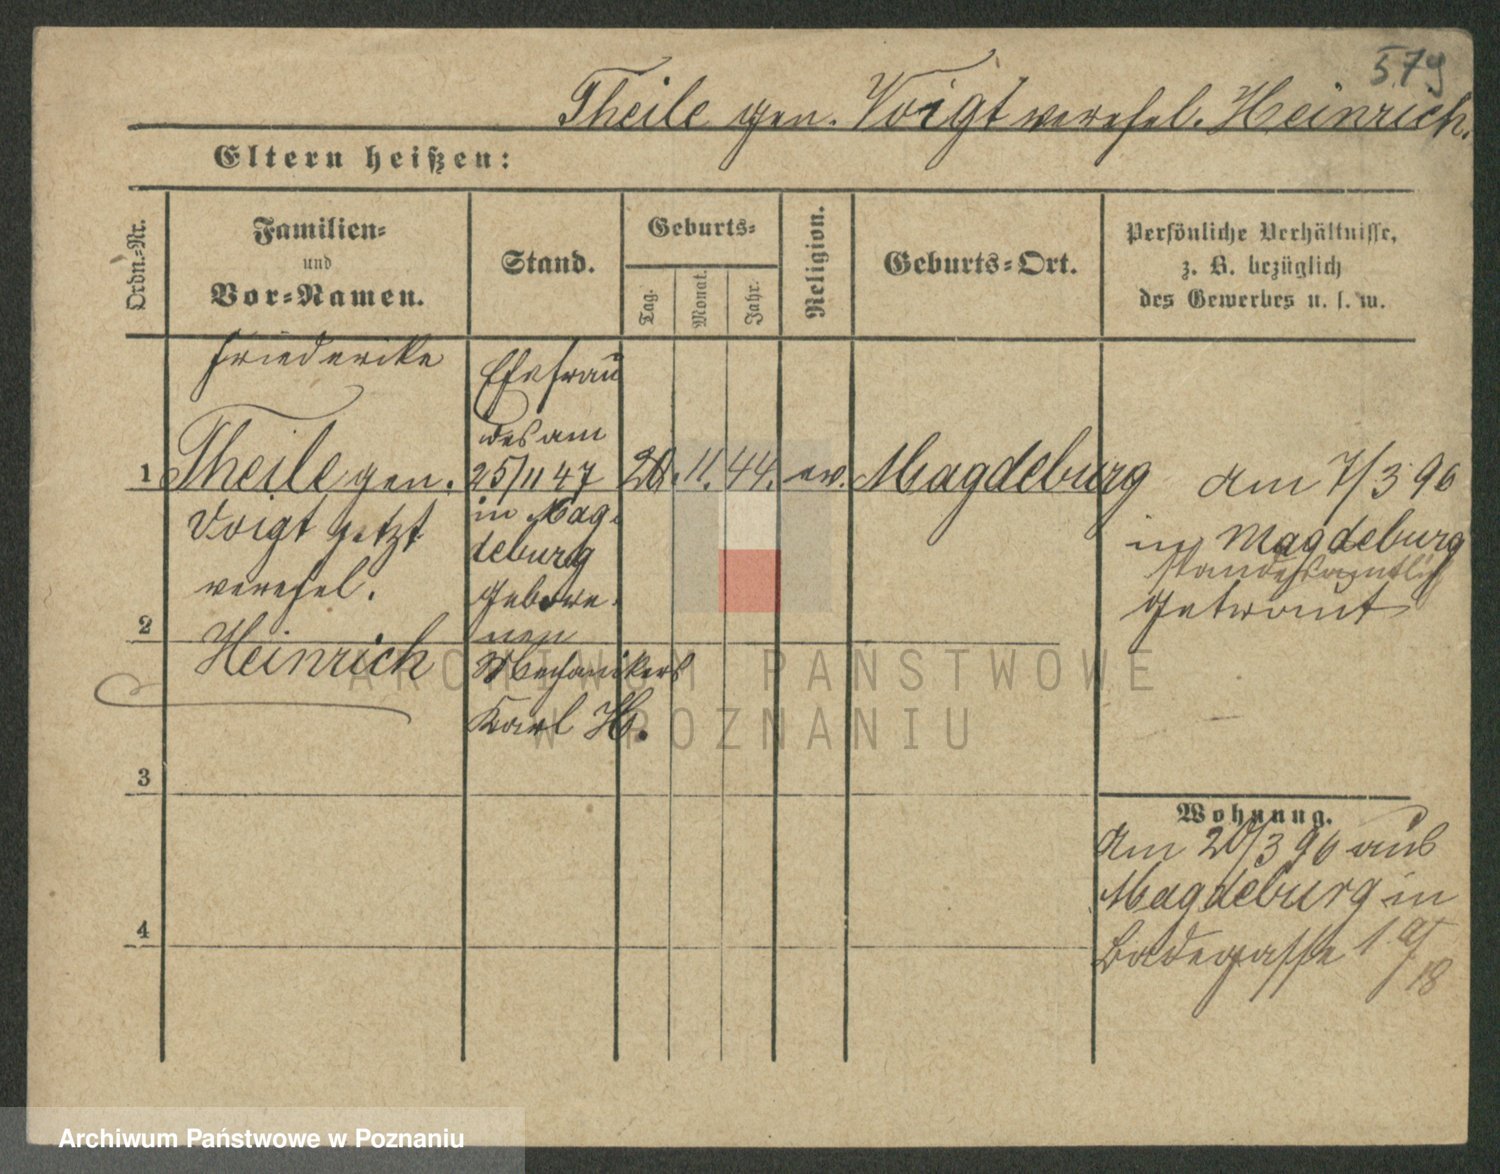 579
Theile gen. Voigt verehel. Heinrich.
Eltern heißen:
Ordn.-Nr.
Familien-
und
Vor-Namen.
Stand.
Geburts-
Tag.
Monat.
Jahr.
Religion.
Geburts-Ort.
Persönliche Verhältnisse,
z. B. bezüglich
des Gewerbes u. s. w.
1
Friederike
Theile gen.
Voigt jetzt
verehel.
Heinrich
Ehefrau
des am
25/11 47
in Mag-
deburg
gebore-
nen
Mechanikers
Karl H.
20. 11. 44. ev. Magdeburg
Am 7/3 96
in Magdeburg
standesamtlich
getraut
2
3
4
Wohnung.
Am 20/3 96 aus
Magdeburg in
Badegasse 1
18
ARCHIWUM PAŃSTWOWE
W POZNANIU
Archiwum Państwowe w Poznaniu